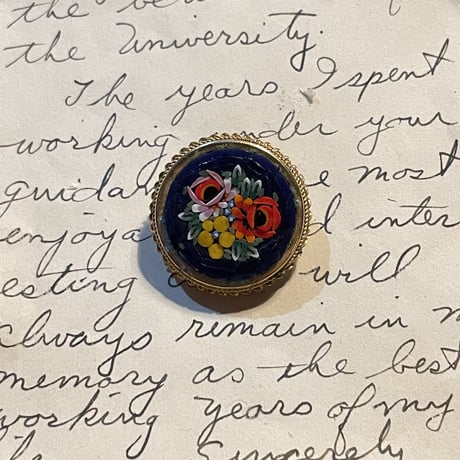 the
the University.
The years I spent
working under your
guida e most
enjoya d inter
esting will
always remain in m
memory as the best
working years of my
Sincerely